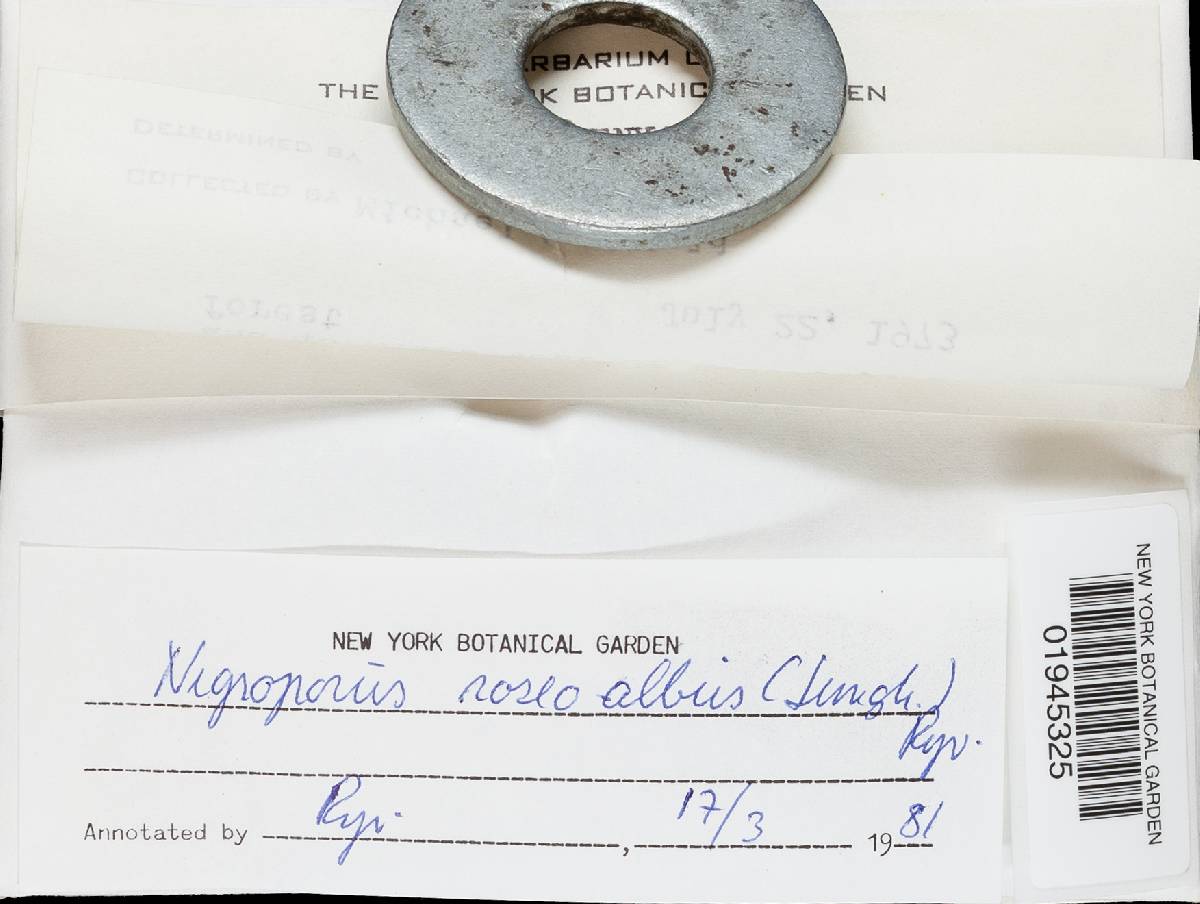 RBARIUM
THE K BOTANIC EN
DETERMINED BY
COLLECTED BY Michael
forest July 22, 1973
NEW YORK BOTANICAL GARDEN
Nigroporus roseo albus (Jungh.)
Ryv.
Annotated by Ryv. , 17/3 1981
NEW YORK BOTANICAL GARDEN
01945325